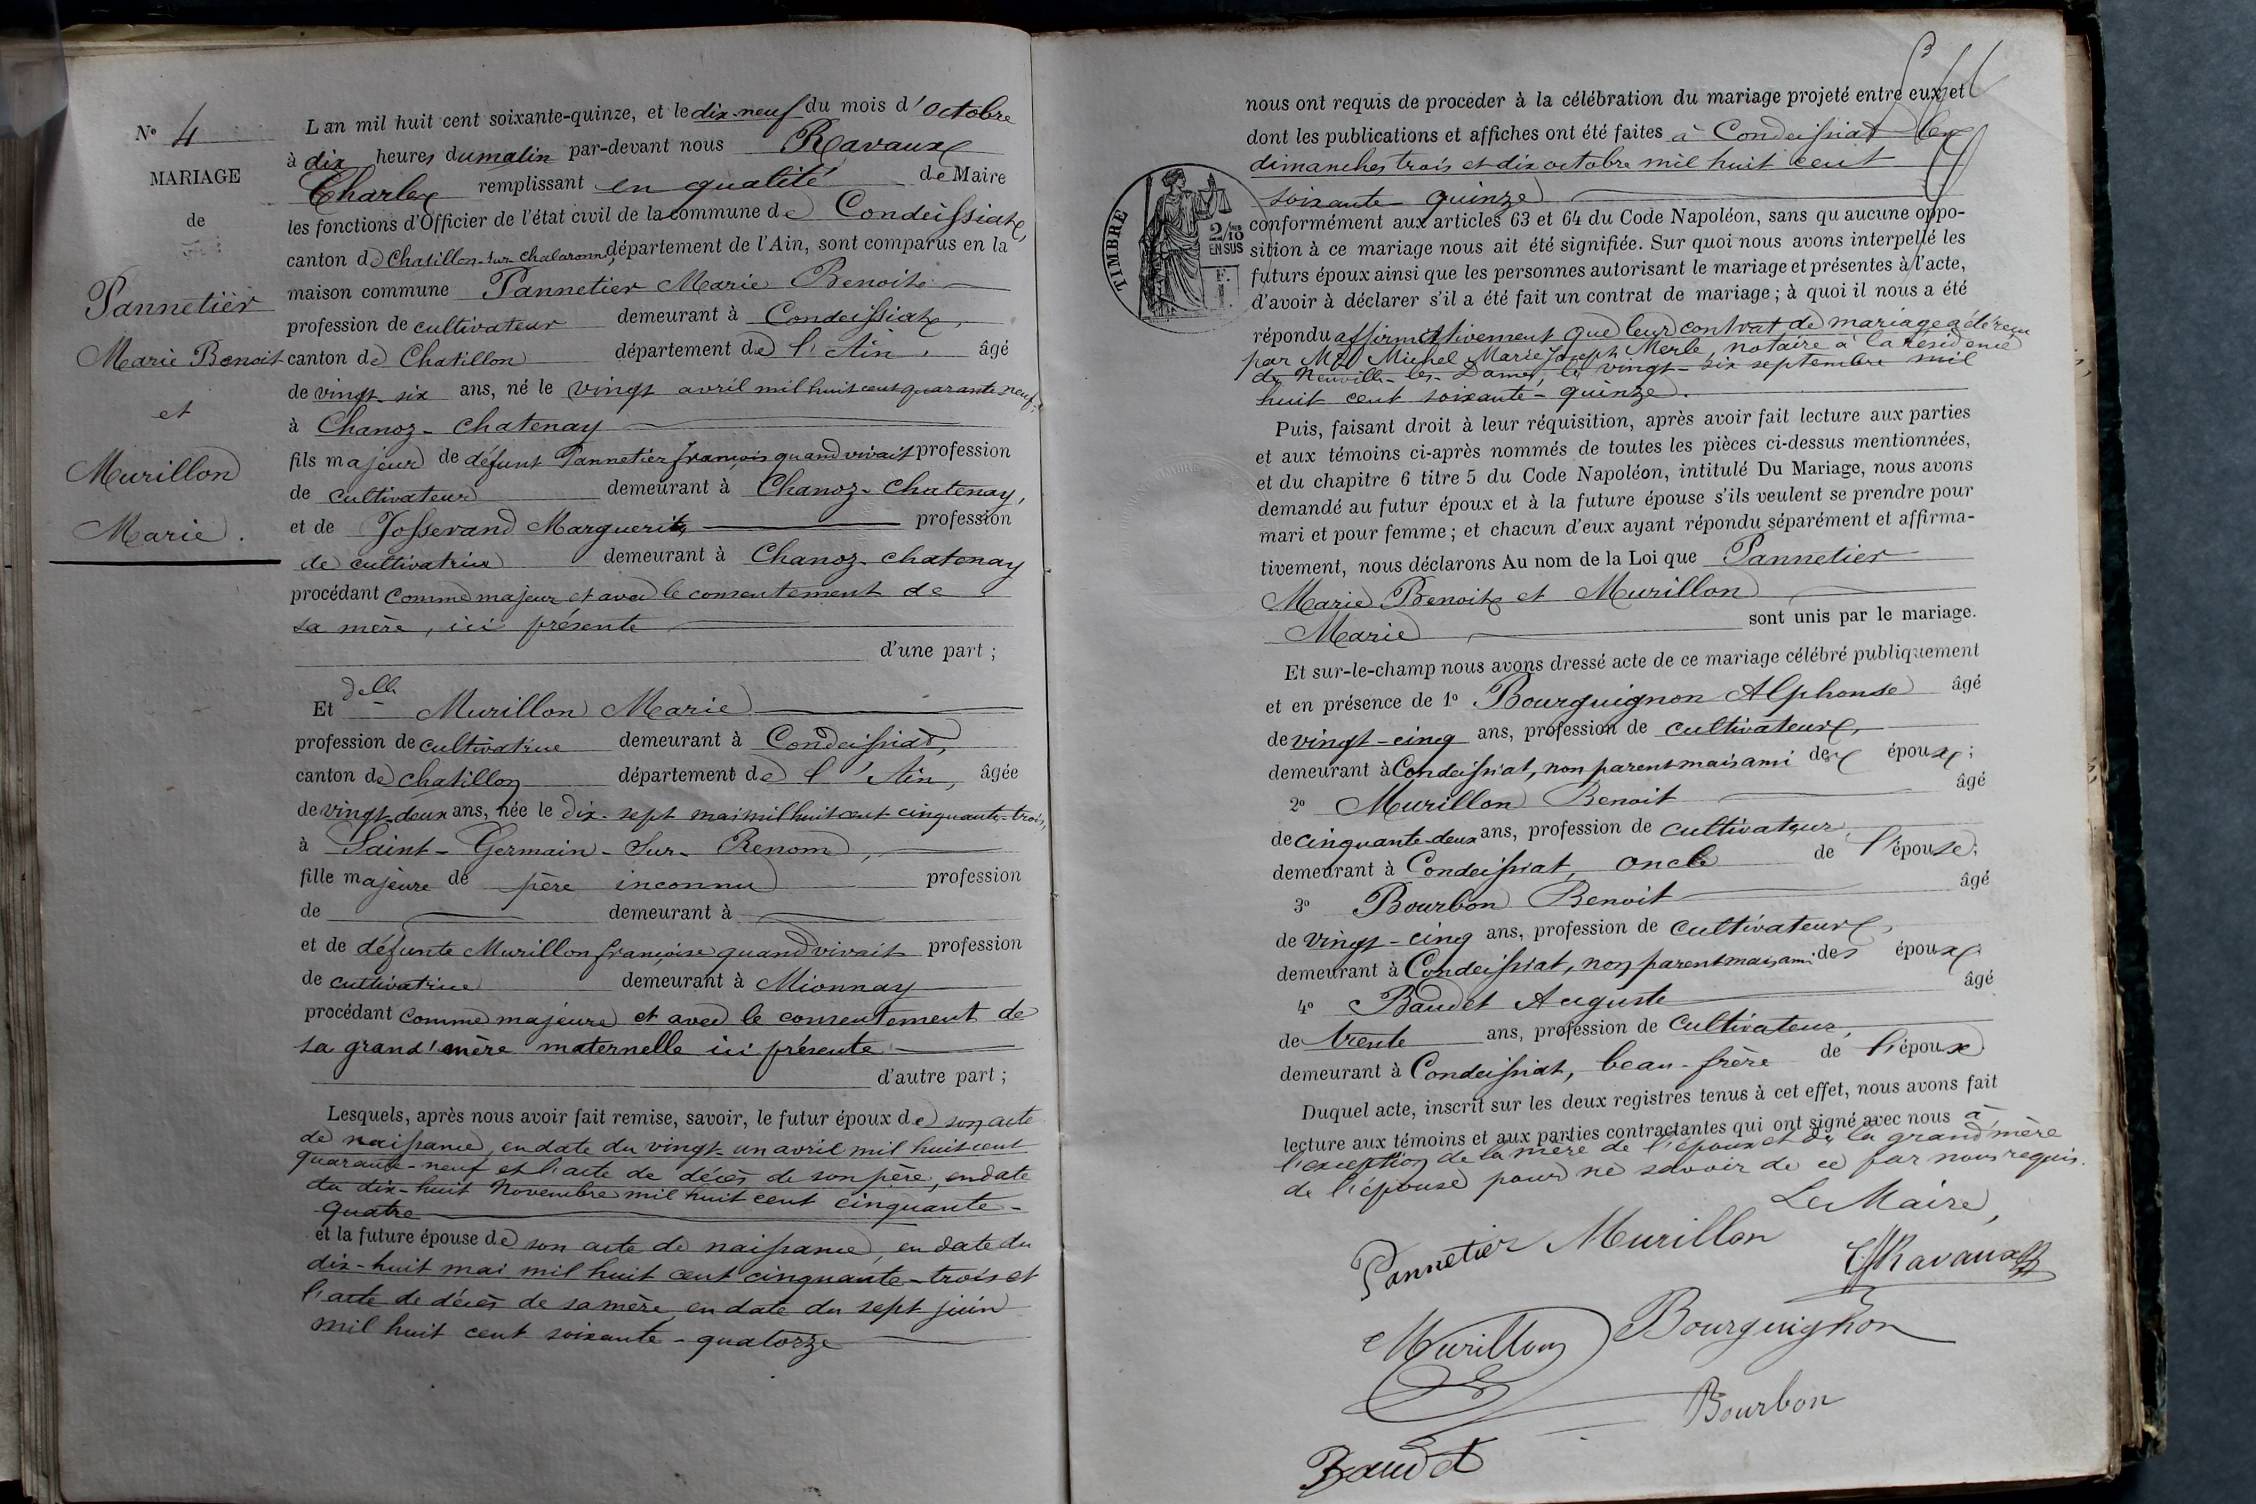 Nº 4
MARIAGE
de
Pannetier
Marie Benoit
et
Murillon
Marie.
L'an mil huit cent soixante-quinze, et le dix-neuf du mois d'octobre
à dix heures du matin par-devant nous Ravaux
Charles remplissant en qualité de Maire
les fonctions d'Officier de l'état civil de la commune de Condeissiat,
canton de Chatillon-sur-Chalaronne, département de l'Ain, sont comparus en la
maison commune Pannetier Marie Benoit
profession de cultivateur demeurant à Condeissiat,
canton de Chatillon département de l'Ain, âgé
de vingt-six ans, né le vingt avril mil huit cent quarante neuf,
à Chanoz-Chatenay
fils majeur de défunt Pannetier françois quand vivait profession
de cultivateur demeurant à Chanoz-Chatenay,
et de Josserand Marguerite profession
de cultivatrice demeurant à Chanoz-Chatenay
procédant comme majeur et avec le consentement de
sa mère, ici présente
d'une part ;
Et delle Murillon Marie
profession de cultivatrice demeurant à Condeissiat,
canton de Chatillon département de l'Ain, âgée
de vingt-deux ans, née le dix-sept mai mil huit cent cinquante-trois,
à Saint-Germain-sur-Renom,
fille majeure de père inconnu profession
de demeurant à
et de défunte Murillon françoise quand vivait profession
de cultivatrice demeurant à Mionnay
procédant comme majeure et avec le consentement de
sa grand'mère maternelle ici présente
d'autre part ;
Lesquels, après nous avoir fait remise, savoir, le futur époux de son acte
de naissance, en date du vingt-un avril mil huit cent
quarante-neuf et l'acte de décès de son père, en date
du dix-huit Novembre mil huit cent cinquante-
quatre
et la future épouse de son acte de naissance, en date du
dix-huit mai mil huit cent cinquante-trois et
l'acte de décès de sa mère en date du sept juin
mil huit cent soixante-quatorze
nous ont requis de procéder à la célébration du mariage projeté entre eux, et
dont les publications et affiches ont été faites à Condeissiat les
dimanches trois et dix octobre mil huit cent
soixante-quinze
TIMBRE
2/10
EN SUS
conformément aux articles 63 et 64 du Code Napoléon, sans qu'aucune oppo-
sition à ce mariage nous ait été signifiée. Sur quoi nous avons interpellé les
futurs époux ainsi que les personnes autorisant le mariage et présentes à l'acte,
d'avoir à déclarer s'il a été fait un contrat de mariage ; à quoi il nous a été
répondu affirmativement que leur contrat de mariage a été reçu
par Me Michel Marie Joseph Merle, notaire à la résidence
de Neuville-les-Dames, le vingt-six septembre mil
huit cent soixante-quinze.
Puis, faisant droit à leur réquisition, après avoir fait lecture aux parties
et aux témoins ci-après nommés de toutes les pièces ci-dessus mentionnées,
et du chapitre 6 titre 5 du Code Napoléon, intitulé Du Mariage, nous avons
demandé au futur époux et à la future épouse s'ils veulent se prendre pour
mari et pour femme ; et chacun d'eux ayant répondu séparément et affirma-
tivement, nous déclarons Au nom de la Loi que Pannetier
Marie Benoit et Murillon
Marie sont unis par le mariage.
Et sur-le-champ nous avons dressé acte de ce mariage célébré publiquement
et en présence de 1º Bourguignon Alphonse âgé
de vingt-cinq ans, profession de cultivateur,
demeurant à Condeissiat, non parent mais ami des époux ;
2º Murillon Benoit âgé
de cinquante-deux ans, profession de cultivateur,
demeurant à Condeissiat, oncle de l'épouse ;
3º Bourbon Benoit âgé
de vingt-cinq ans, profession de cultivateur,
demeurant à Condeissiat, non parent mais ami des époux
4º Baudet Auguste âgé
de trente ans, profession de cultivateur,
demeurant à Condeissiat, beau-frère de l'époux.
Duquel acte, inscrit sur les deux registres tenus à cet effet, nous avons fait
lecture aux témoins et aux parties contractantes qui ont signé avec nous à
l'exception de la mère de l'époux et de la grand'mère
de l'épouse pour ne savoir de ce par nous requis.
Le Maire,
Pannetier Murillon
Ravaux
Murillon Bourguignon
Bourbon
Baudet